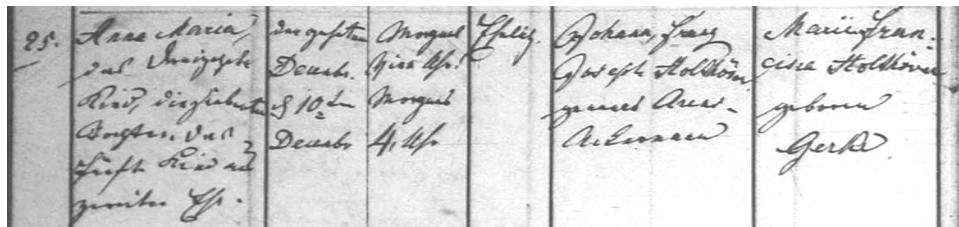 25.
Anna Maria,
das dreizehnte
Kind, die siebente
Tochter, das
fünfte Kind aus
zweiter Ehe.
den zehnten
Decembr.
d 10ten
Decembr
Morgens
vier Uhr.
Morgens
4, Uhr
Ehelig.
Johann Franz
Joseph Holthöver
Ackermann
Maria Fran-
cisca Holthöver
geboren
Gerke